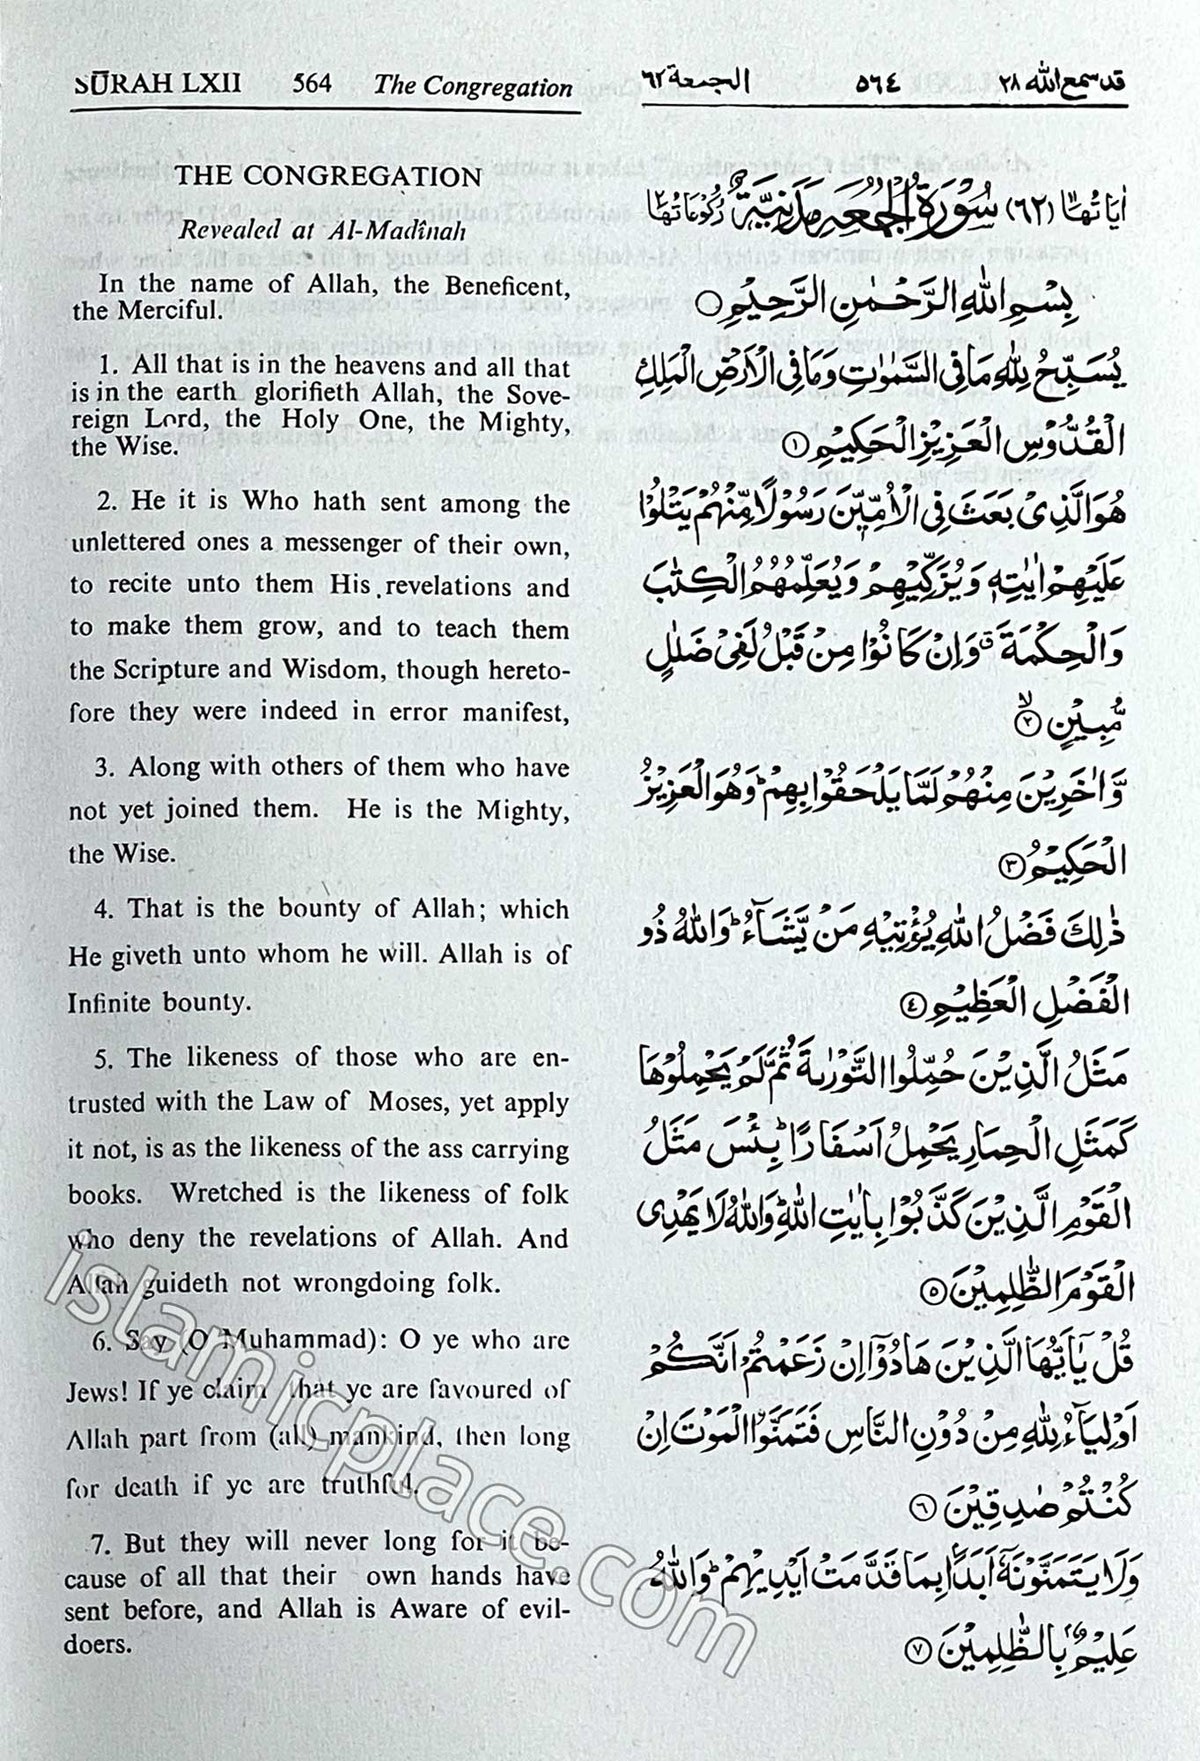 SŪRAH LXII 564 The Congregation
THE CONGREGATION
Revealed at Al-Madînah
In the name of Allah, the Beneficent,
the Merciful.
1. All that is in the heavens and all that
is in the earth glorifieth Allah, the Sove-
reign Lord, the Holy One, the Mighty,
the Wise.
2. He it is Who hath sent among the
unlettered ones a messenger of their own,
to recite unto them His revelations and
to make them grow, and to teach them
the Scripture and Wisdom, though hereto-
fore they were indeed in error manifest,
3. Along with others of them who have
not yet joined them. He is the Mighty,
the Wise.
4. That is the bounty of Allah; which
He giveth unto whom he will. Allah is of
Infinite bounty.
5. The likeness of those who are en-
trusted with the Law of Moses, yet apply
it not, is as the likeness of the ass carrying
books. Wretched is the likeness of folk
who deny the revelations of Allah. And
Allah guideth not wrongdoing folk.
6. Say (O Muhammad): O ye who are
Jews! If ye claim that ye are favoured of
Allah part from (all) mankind, then long
for death if ye are truthful.
7. But they will never long for it be-
cause of all that their own hands have
sent before, and Allah is Aware of evil-
doers.
قد سمع الله ٢٨ ٥٦٤ الجمعة ٦٢
اٰيَاتُهَا ١١ (٦٢) سُوْرَةُ الْجُمُعَةِ مَدَنِيَّةٌ رُكُوْعَاتُهَا ٢
بِسْمِ اللّٰهِ الرَّحْمٰنِ الرَّحِيْمِ ○
يُسَبِّحُ لِلّٰهِ مَا فِى السَّمٰوٰتِ وَمَا فِى الْاَرْضِ الْمَلِكِ
الْقُدُّوْسِ الْعَزِيْزِ الْحَكِيْمِ ①
هُوَ الَّذِىْ بَعَثَ فِى الْاُمِّيّٖنَ رَسُوْلًا مِّنْهُمْ يَتْلُوْا
عَلَيْهِمْ اٰيٰتِهٖ وَيُزَكِّيْهِمْ وَيُعَلِّمُهُمُ الْكِتٰبَ
وَالْحِكْمَةَ ۚ وَاِنْ كَانُوْا مِنْ قَبْلُ لَفِىْ ضَلٰلٍ
مُّبِيْنٍ ②
وَّاٰخَرِيْنَ مِنْهُمْ لَمَّا يَلْحَقُوْا بِهِمْ ؕ وَهُوَ الْعَزِيْزُ
الْحَكِيْمُ ③
ذٰلِكَ فَضْلُ اللّٰهِ يُؤْتِيْهِ مَنْ يَّشَآءُ ؕ وَاللّٰهُ ذُو
الْفَضْلِ الْعَظِيْمِ ④
مَثَلُ الَّذِيْنَ حُمِّلُوا التَّوْرٰىةَ ثُمَّ لَمْ يَحْمِلُوْهَا
كَمَثَلِ الْحِمَارِ يَحْمِلُ اَسْفَارًا ؕ بِئْسَ مَثَلُ
الْقَوْمِ الَّذِيْنَ كَذَّبُوْا بِاٰيٰتِ اللّٰهِ ؕ وَاللّٰهُ لَا يَهْدِى
الْقَوْمَ الظّٰلِمِيْنَ ⑤
قُلْ يٰۤاَيُّهَا الَّذِيْنَ هَادُوْۤا اِنْ زَعَمْتُمْ اَنَّكُمْ
اَوْلِيَآءُ لِلّٰهِ مِنْ دُوْنِ النَّاسِ فَتَمَنَّوُا الْمَوْتَ اِنْ
كُنْتُمْ صٰدِقِيْنَ ⑥
وَلَا يَتَمَنَّوْنَهٗۤ اَبَدًۢا بِمَا قَدَّمَتْ اَيْدِيْهِمْ ؕ وَاللّٰهُ
عَلِيْمٌۢ بِالظّٰلِمِيْنَ ⑦
islamicplace.com